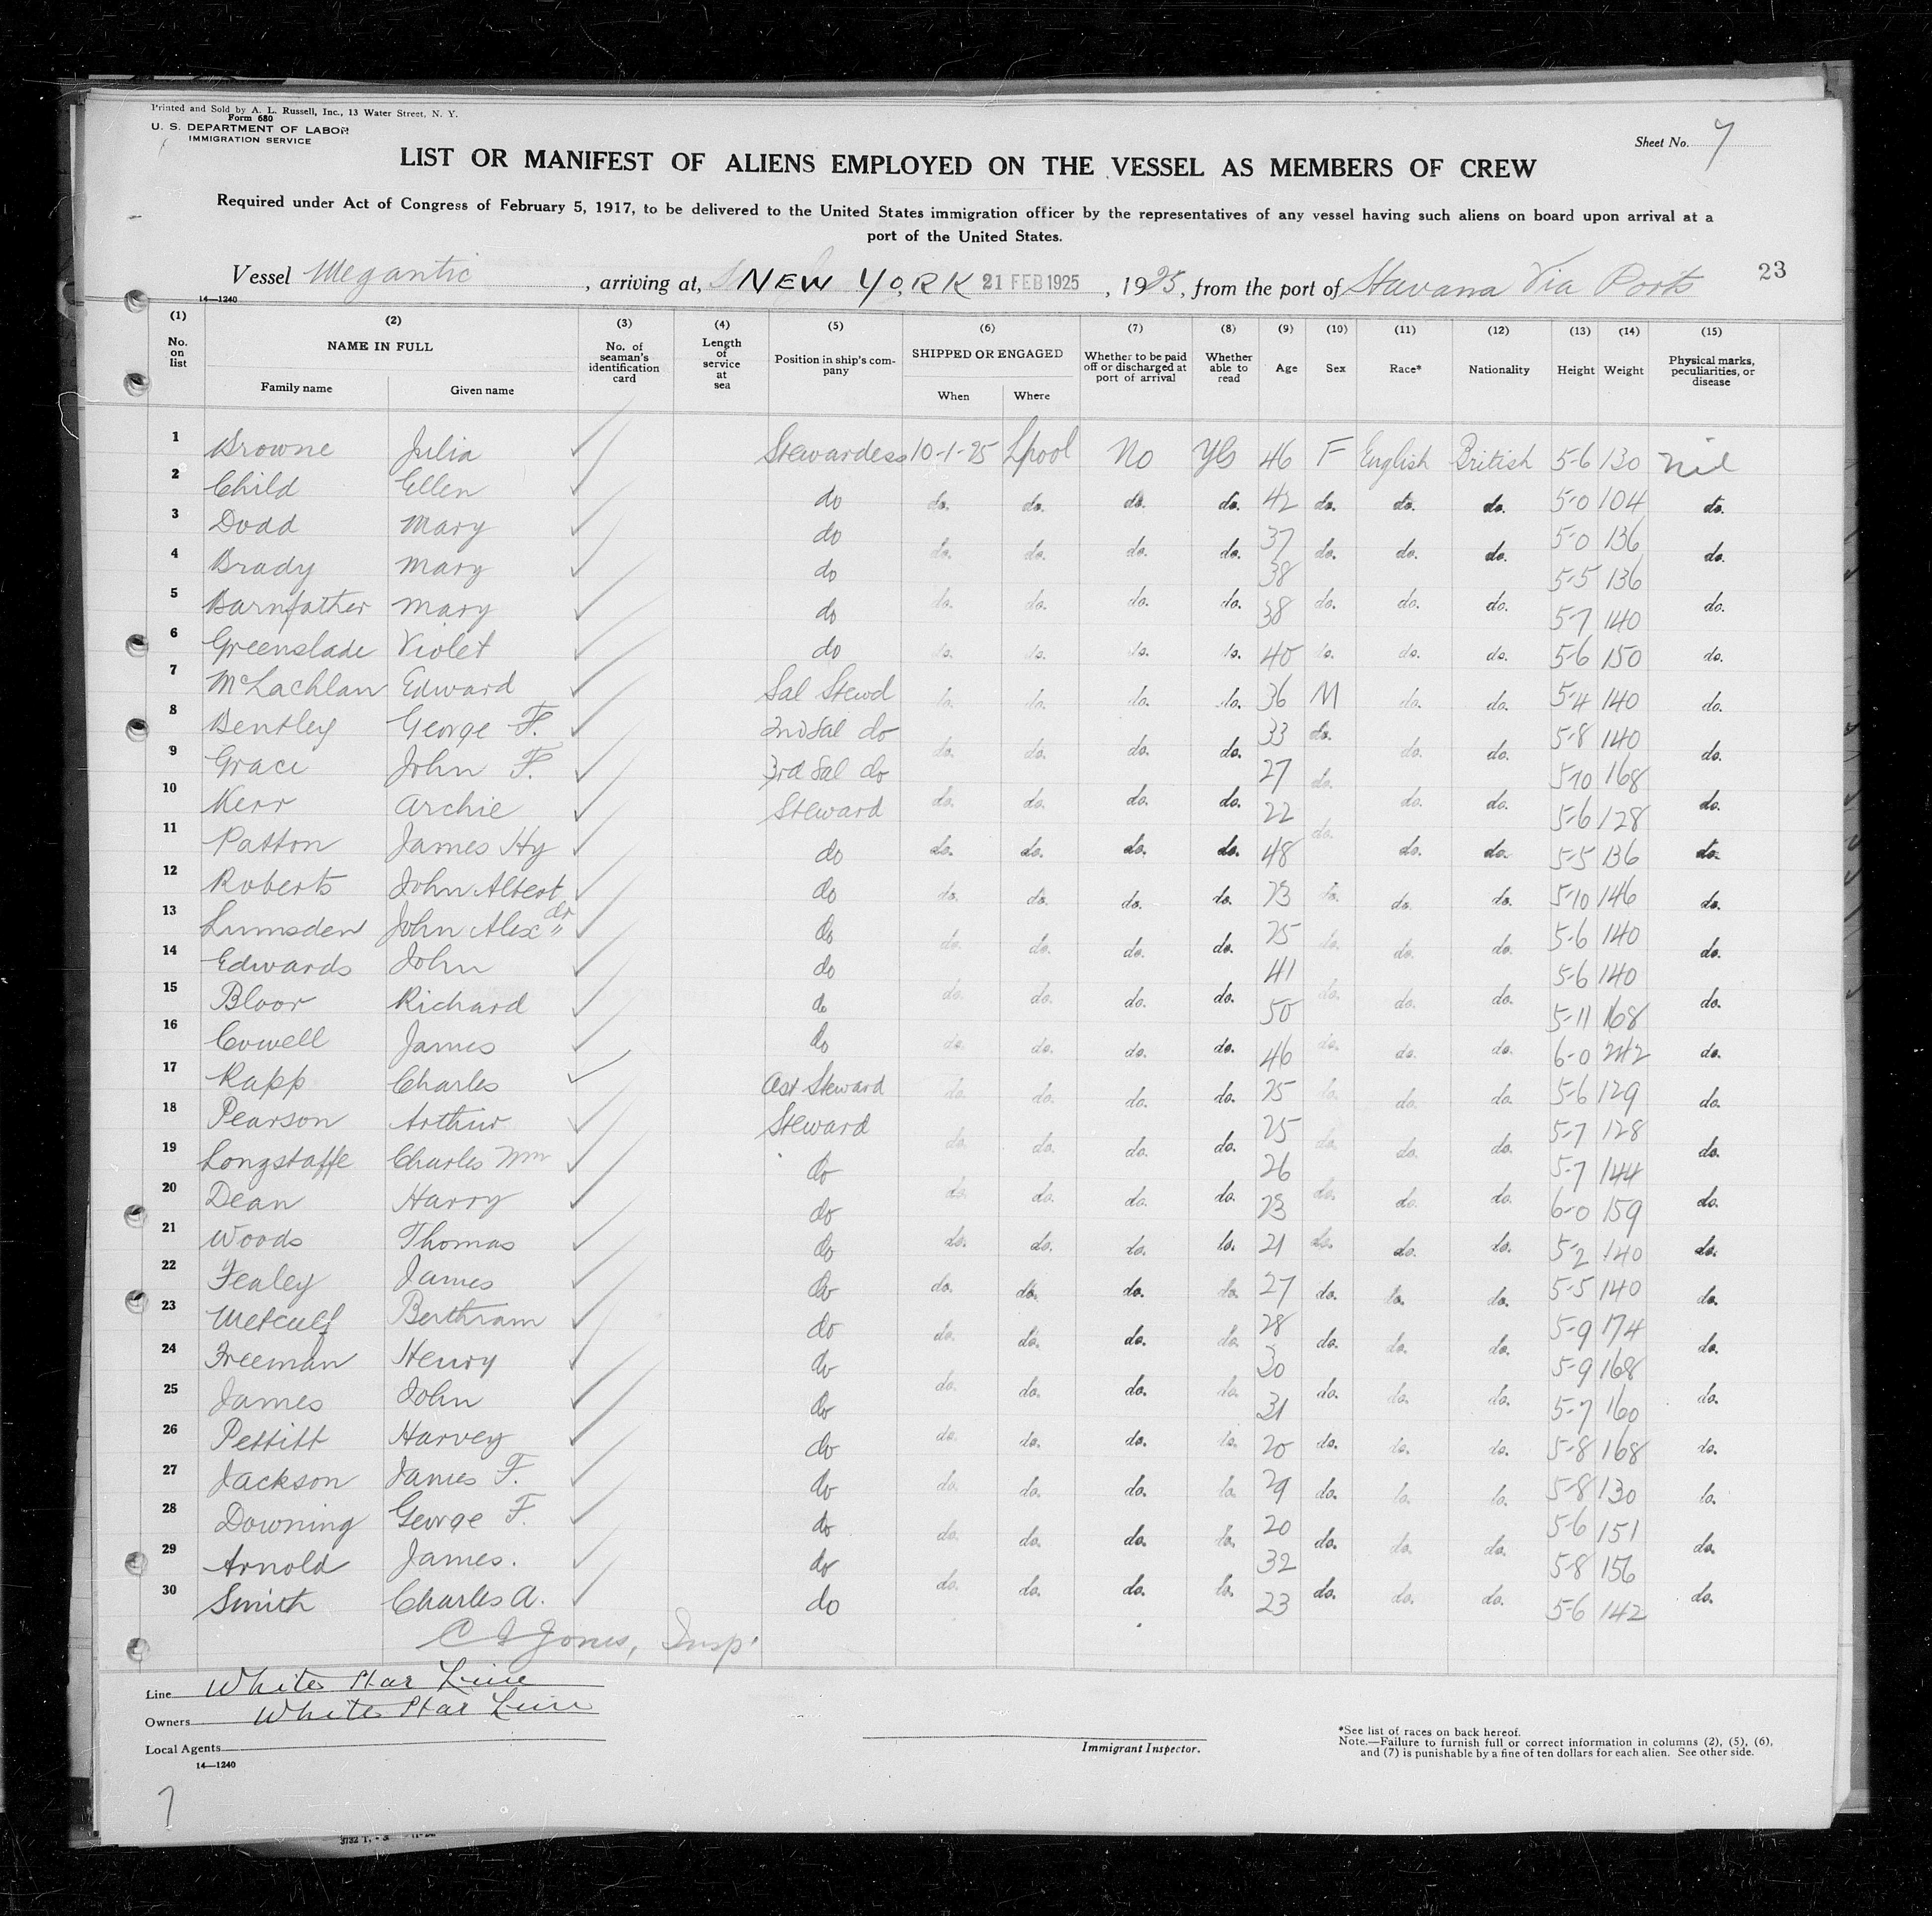 Printed and Sold by A. L. Russell, Inc., 13 Water Street, N. Y.
Form 680
U. S. DEPARTMENT OF LABOR
IMMIGRATION SERVICE
Sheet No. 7
LIST OR MANIFEST OF ALIENS EMPLOYED ON THE VESSEL AS MEMBERS OF CREW
Required under Act of Congress of February 5, 1917, to be delivered to the United States immigration officer by the representatives of any vessel having such aliens on board upon arrival at a
port of the United States.
Vessel Megantic, arriving at, NEW YORK 21 FEB 1925, 1925, from the port of Havana Via Ports
23
14—1240
(1) (2) (3) (4) (5) (6) (7) (8) (9) (10) (11) (12) (13) (14) (15)
No. on list NAME IN FULL Family name Given name No. of seaman's identification card Length of service at sea Position in ship's company SHIPPED OR ENGAGED When Where Whether to be paid off or discharged at port of arrival Whether able to read Age Sex Race* Nationality Height Weight Physical marks, peculiarities, or disease
1 Browne Julia Stewardess 10-1-25 Lpool No Yes 46 F English British 5-6 130 nil
2 Child Ellen do do. do. do. do. 42 do. do. do. 5-0 104 do.
3 Dodd Mary do do. do. do. do. 37 do. do. do. 5-0 136 do.
4 Brady Mary do 38 5-5 136
5 Barnfather Mary do do. do. do. do. 38 do. do. do. 5-7 140 do.
6 Greenslade Violet do do. do. do. do. 40 do. do. do. 5-6 150 do.
7 McLachlan Edward Sal Stewd do. do. do. do. 36 M do. do. 5-4 140 do.
8 Bentley George F. 2nd Sal do do. do. do. do. 33 do. do. do. 5-8 140 do.
9 Grace John F. 3rd Sal do 27 do. 5-10 168
10 Kerr Archie Steward do. do. do. do. 22 do. do. do. 5-6 128 do.
11 Patton James Hy do do. do. do. do. 48 do. do. 5-5 136 do.
12 Roberts John Albert do do. do. do. do. 23 do. do. do. 5-10 146 do.
13 Lumsden John Alexdr do do. do. do. do. 25 do. do. do. 5-6 140 do.
14 Edwards John do 41 5-6 140
15 Bloor Richard do do. do. do. do. 50 do. do. do. 5-11 168 do.
16 Cowell James do do. do. do. do. 46 do. do. do. 6-0 242 do.
17 Rapp Charles Ast Steward do. do. do. do. 25 do. do. do. 5-6 129 do.
18 Pearson Arthur Steward do. do. do. do. 25 do. do. do. 5-7 128 do.
19 Longstaffe Charles Wm do 26 5-7 144
20 Dean Harry do do. do. do. do. 23 do. do. do. 6-0 159 do.
21 Woods Thomas do do. do. do. do. 21 do. do. do. 5-2 140 do.
22 Fealey James do do. do. do. do. 27 do. do. do. 5-5 140 do.
23 Metcalf Bertham do do. do. do. do. 28 do. do. do. 5-9 174 do.
24 Freeman Henry do 30 5-9 168
25 James John do do. do. do. do. 31 do. do. do. 5-7 160 do.
26 Pettitt Harvey do do. do. do. do. 20 do. do. do. 5-8 168 do.
27 Jackson James F. do do. do. do. do. 29 do. do. do. 5-8 130 do.
28 Downing George F. do do. do. do. do. 20 do. do. do. 5-6 151 do.
29 Arnold James. do 32 5-8 156
30 Smith Charles A. do do. do. do. do. 23 do. do. do. 5-6 142 do.
Jones, Insp.
Line White Star Line
Owners White Star Line
Local Agents
14—1240
Immigrant Inspector.
*See list of races on back hereof.
Note.—Failure to furnish full or correct information in columns (2), (5), (6),
and (7) is punishable by a fine of ten dollars for each alien. See other side.
7